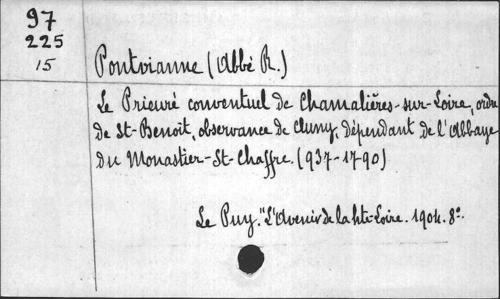 97
225
15
Pontvianne (Abbé R.)
Le Prieuré conventuel de Chamalières-sur-Loire, ordre
de St-Benoit, observance de Cluny, dépendant de l'Abbaye
du Monastier-St-Chaffre. (937-1790)
Le Puy. "L'Avenir de la hte-Loire. 1904. 8º.